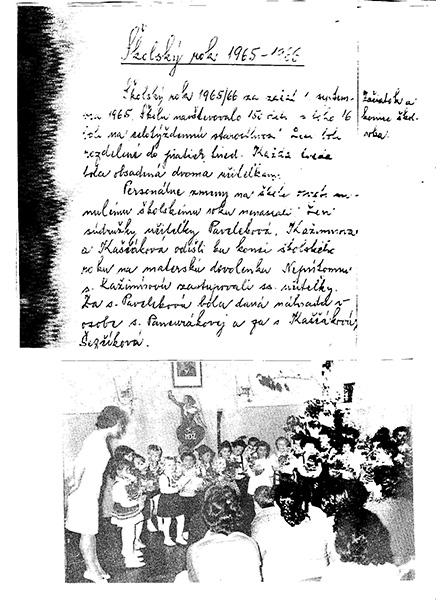 Školský rok 1965-1966
Školský rok 1965/66 sa začal 1. septem-
bra 1965. Školu navštevovalo 150 detí z toho 16
na celotýždennú starostlivosť. boli
rozdelené do piatich tried. Každá trieda
bola obsadená dvoma učiteľkami.
Personálne zmeny na škole
minulému školskému roku nenastali.
súdružky učiteľky Paveleková, Kazimírová
a Kaščáková odišli ku koncu školského
roku na materskú dovolenku. Neprítomnú
s. Kazimírovú zastupovali ss. učiteľky.
Za s. Pavelekovú bola daná náhrada v
osobe s. Pancurákovej a za s. Kaščákovú,
Sežíková.
Začiatok a
konanie škol.
roka.
MDŽ